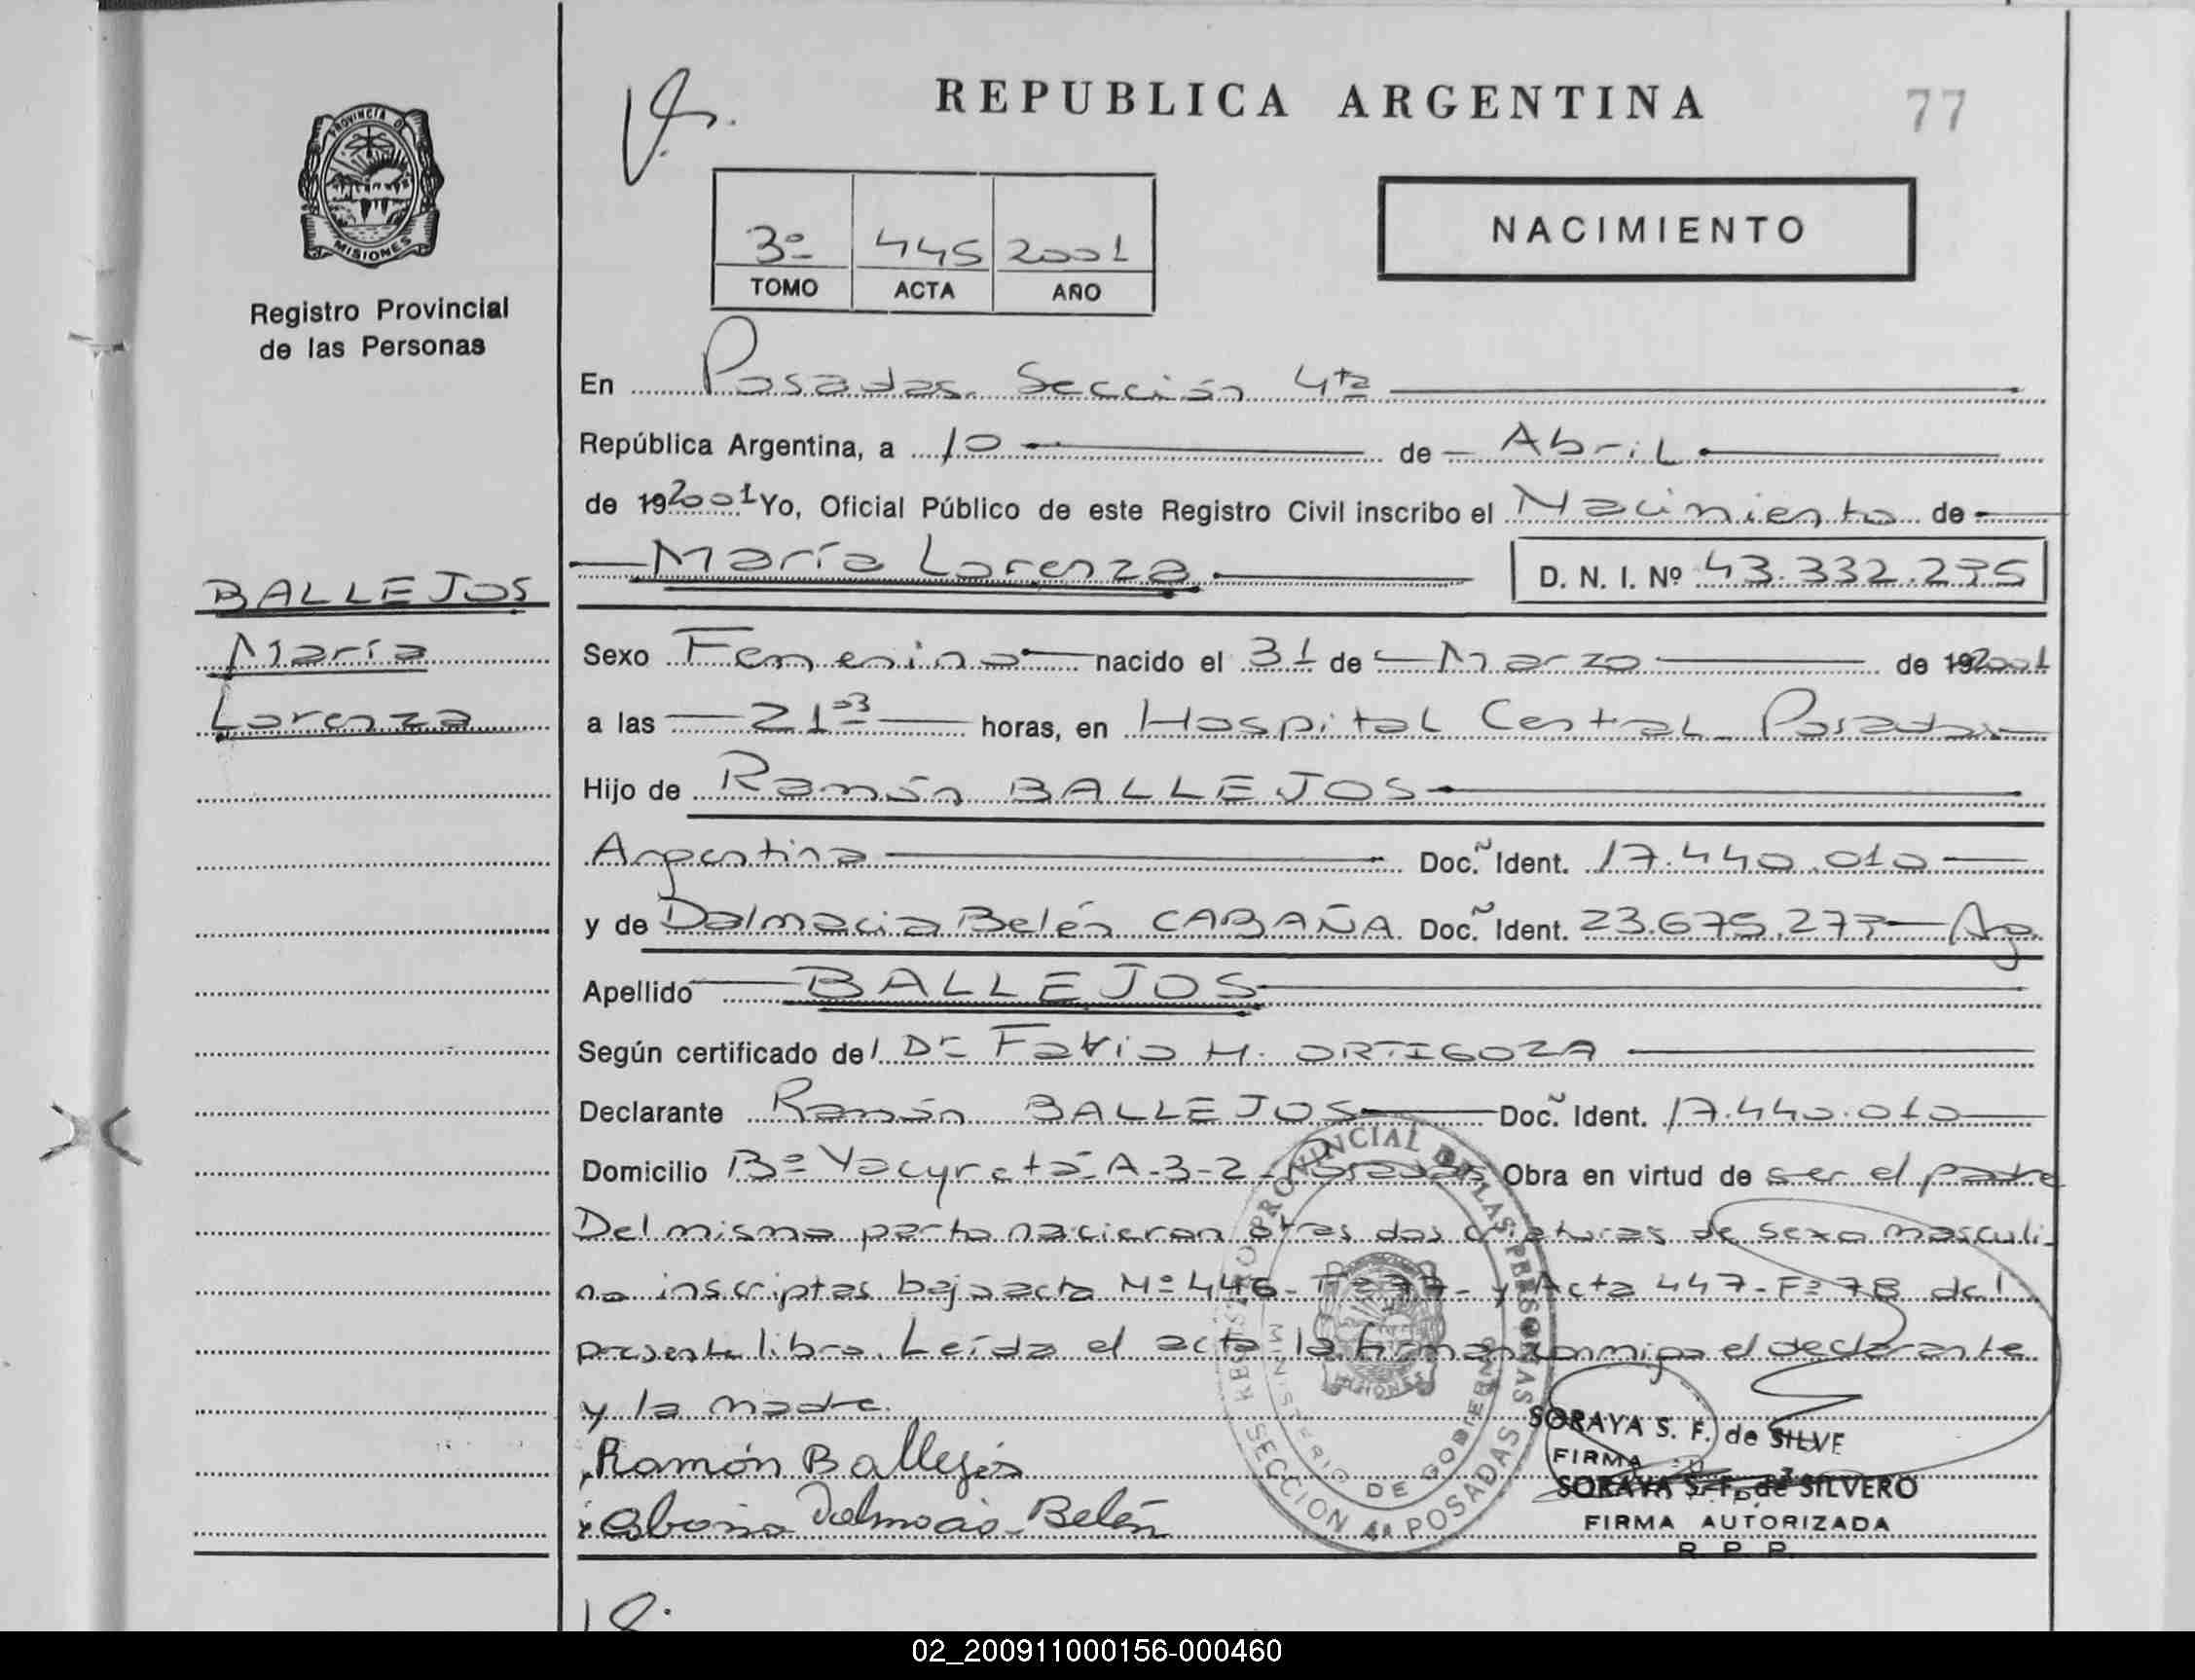 REPUBLICA ARGENTINA
77
PROVINCIA DE
MISIONES
Registro Provincial
de las Personas
3º 445 2001
TOMO ACTA AÑO
NACIMIENTO
En Posadas. Sección 4ta
República Argentina, a 10 de Abril
de 192001 Yo, Oficial Público de este Registro Civil inscribo el Nacimiento de
María Lorenza D. N. I. Nº 43.332.275
BALLEJOS
María
Lorenza
Sexo Femenino nacido el 31 de Marzo de 192001
a las 21 03 horas, en Hospital Central - Posadas
Hijo de Ramón BALLEJOS
Argentina Doc. Ident. 17.440.010
y de Dalmacia Belén CABAÑA Doc. Ident. 23.675.277 Arg.
Apellido BALLEJOS
Según certificado del Dr Fabio H. ORTIGOZA
Declarante Ramón BALLEJOS Doc. Ident. 17.440.010
Domicilio Bº Yacyreta-A-3-2-Posadas Obra en virtud de ser el padre
Del mismo parto nacieron otras dos criaturas de sexo masculi-
no inscriptas bajo acta Nº 446-Fº 77- y Acta 447-Fº 78 del
presente libro. Leída el acta la firman conmigo el declarante
y la madre.
Ramón Ballejos
Cabaña Dalmacia Belén
REGISTRO PROVINCIAL DE LAS PERSONAS
MINISTERIO DE GOBIERNO
SECCION 4a POSADAS
MISIONES
SORAYA S. F. de SILVE
FIRMA
SORAYA S. F. de SILVERO
FIRMA AUTORIZADA
R. P. P.
02_200911000156-000460